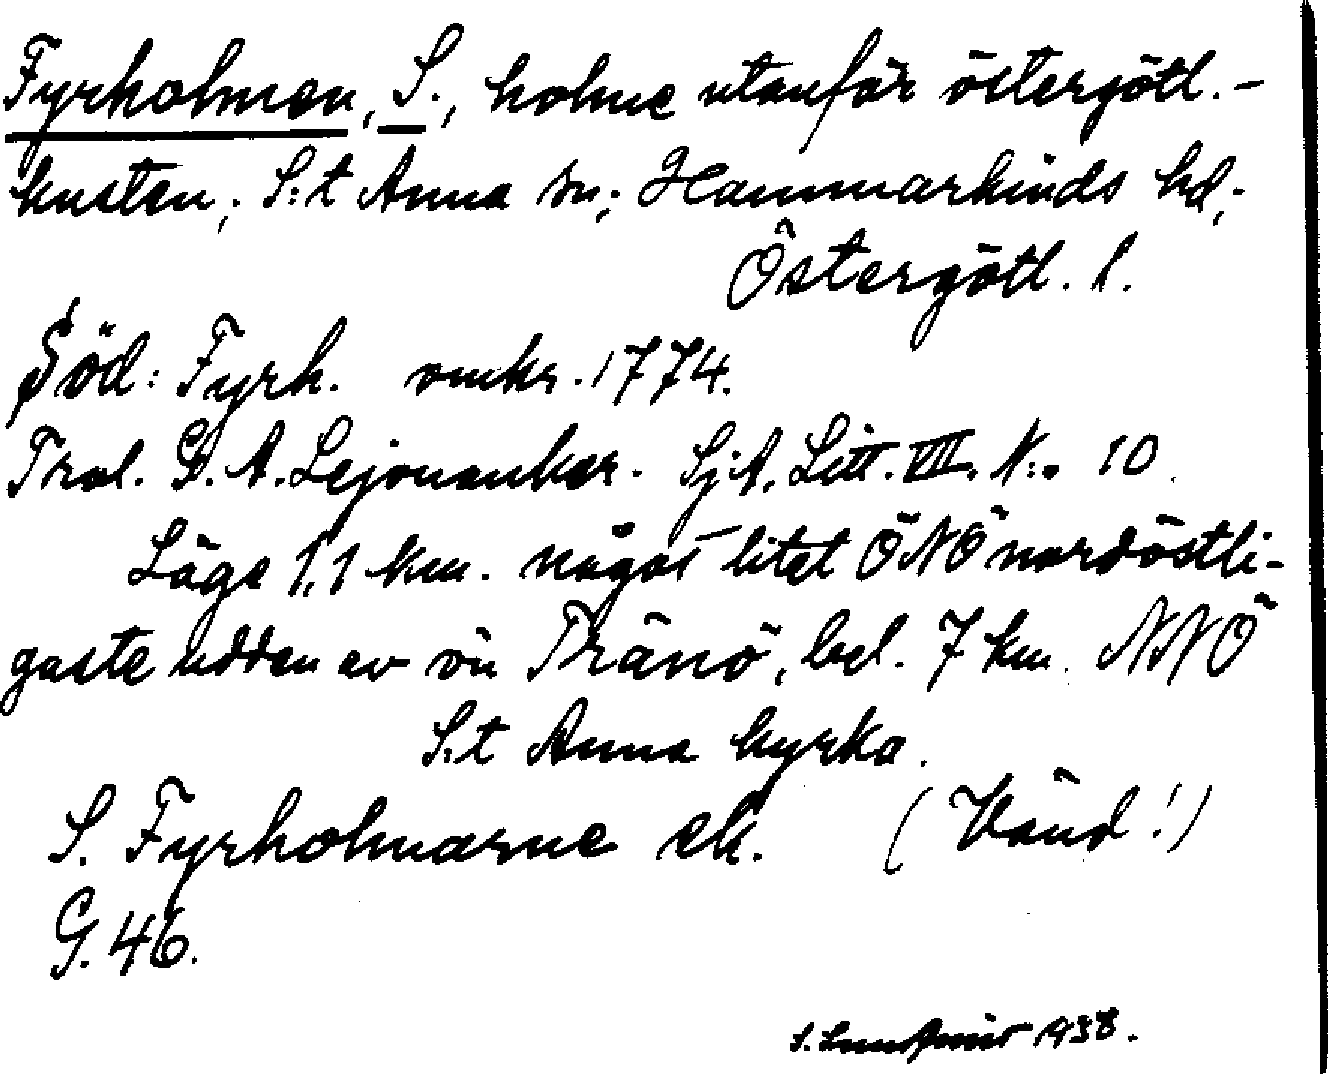 Fyrholmen, S., holme utanför östergötl.-
kusten; S:t Anna sn; Hammarkinds hd;
Östergötl. l.
Söd: Fyrh. omkr. 1774.
Trol. G. A. Lejonanker. SjA. Litt. VIII. N:o 10.
Läge 1,1 km. något litet ÖNÖ nordöstli-
gaste udden av ön Tränö, bel. 7 km. NNÖ
S:t Anna kyrka.
S. Fyrholmarne ek. (Vänd!)
G. 46.
S. 1938.